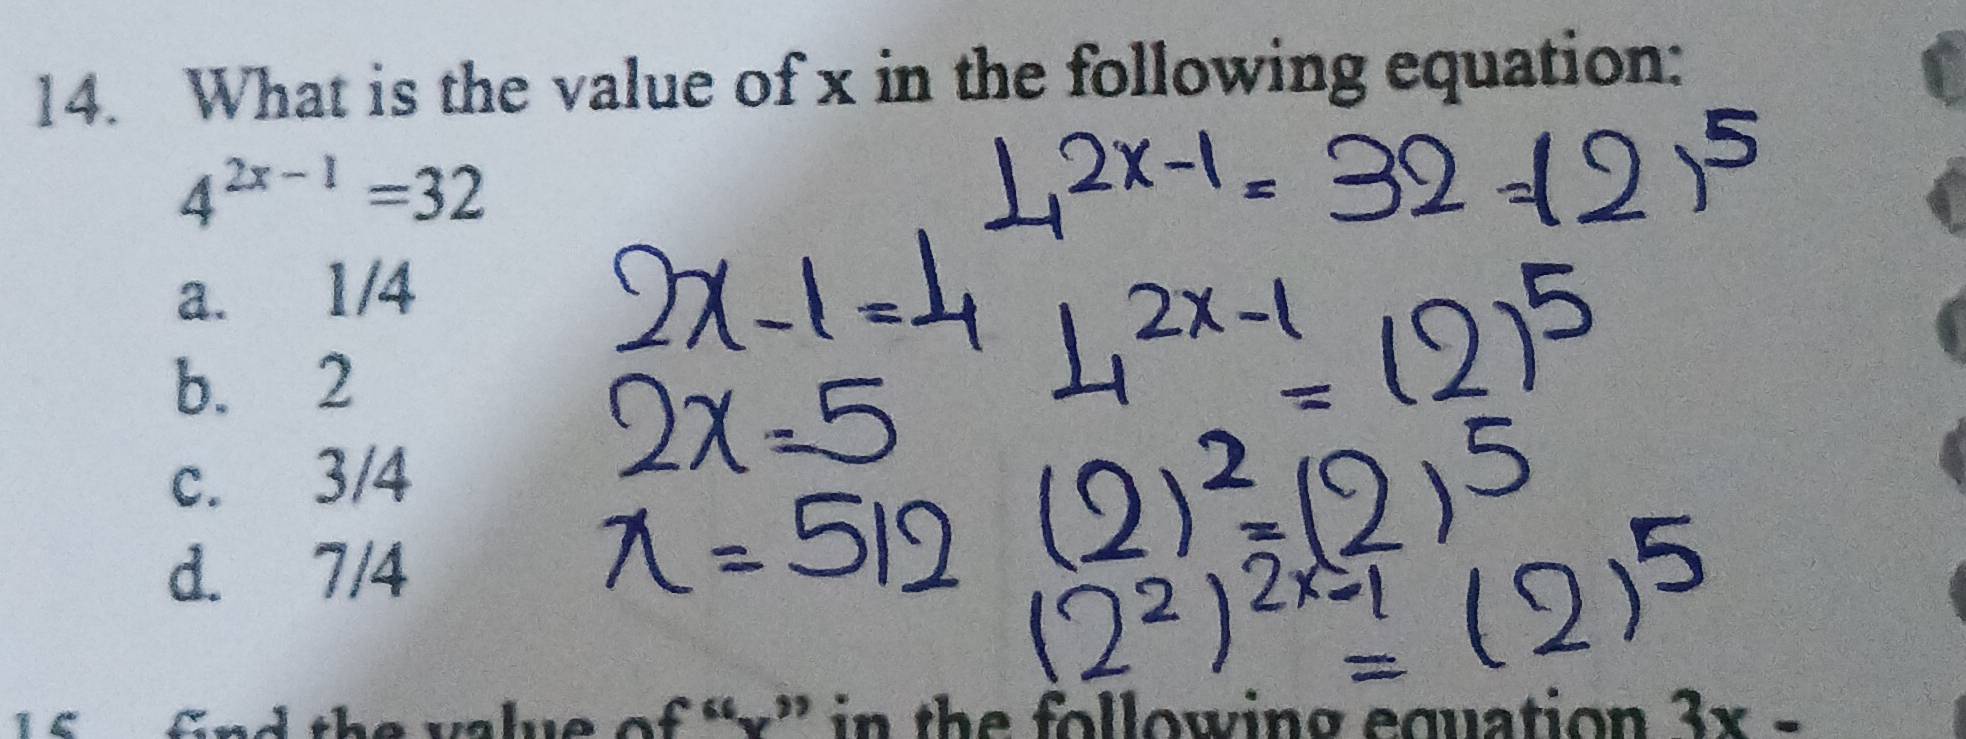 14. What is the value of x in the following equation:
4^{2x-1} =32
a. 1/4
b. 2
c. 3/4
d. 7/4
4^{2x-1} = 32 = (2)^5
4^{2x-1} = (2)^5
(2)^2 = (2)^5
(2^2)^{2x-1} = (2)^5
2x-1=4
2x=5
x=512
15 find the value of “x” in the following equation 3x -